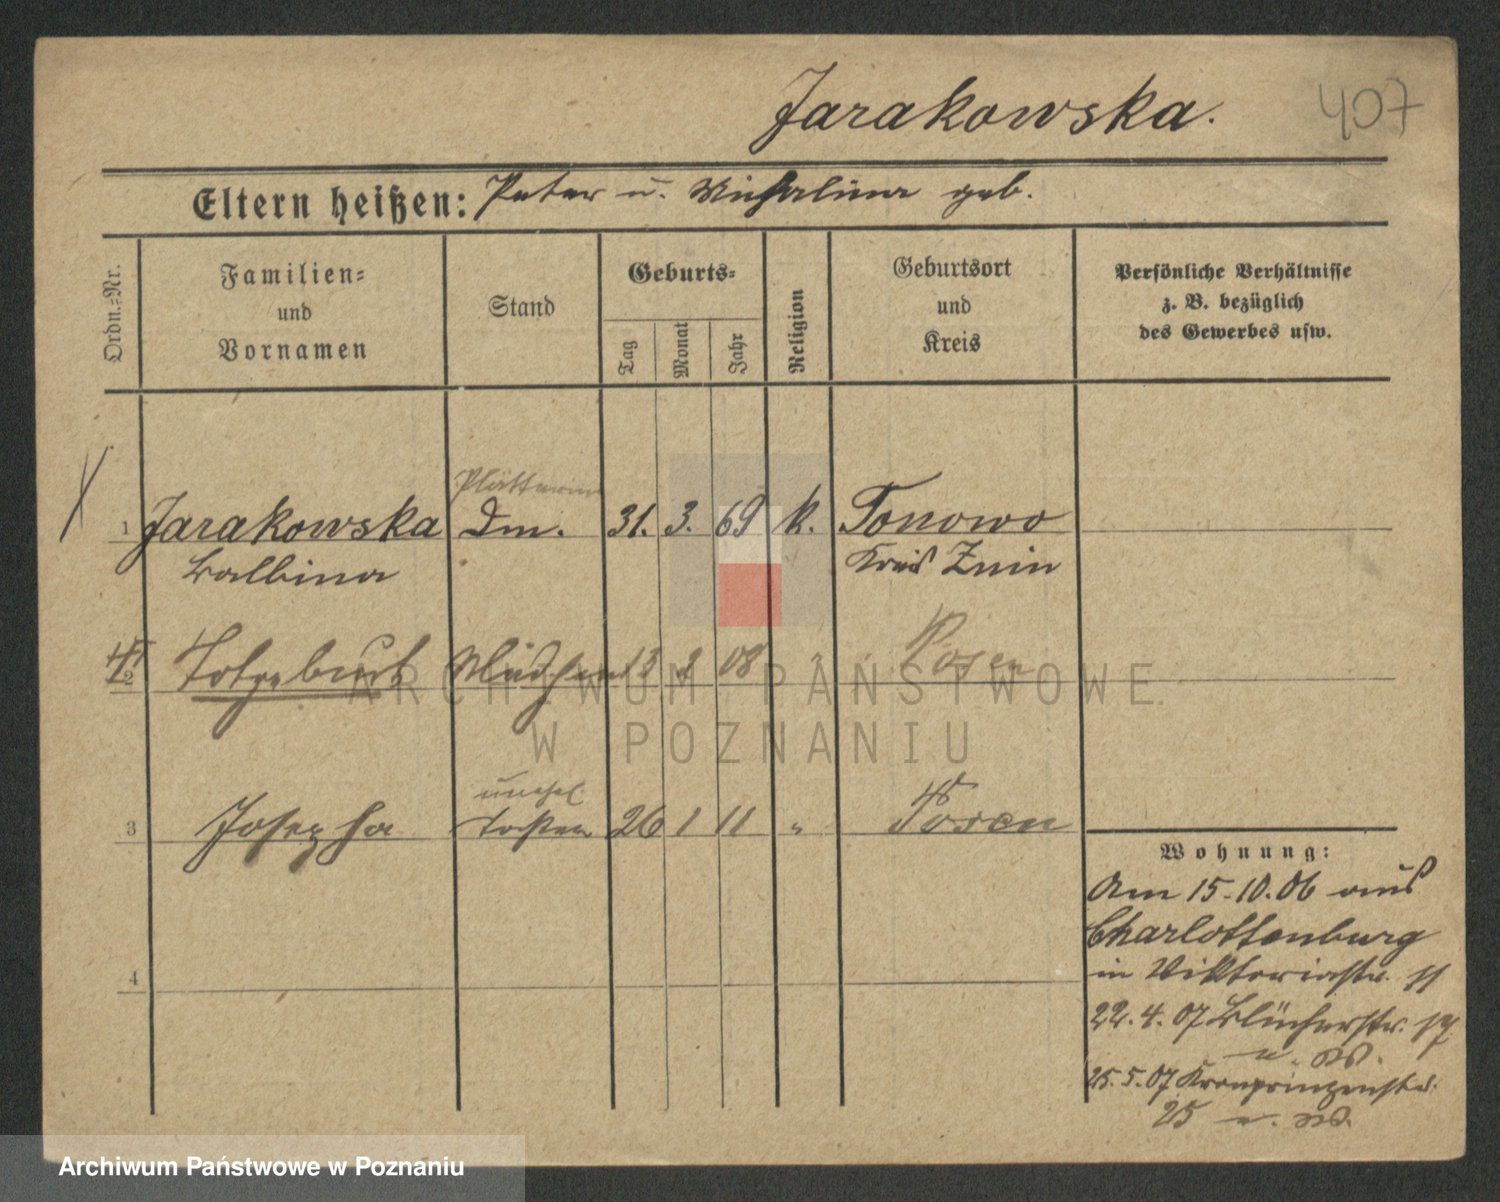 Jarakowska.
407
Eltern heißen: Peter u. Michalina geb.
Ordn.=Nr.
Familien=
und
Vornamen
Stand
Geburts=
Tag
Monat
Jahr
Religion
Geburtsort
und
Kreis
Persönliche Verhältnisse
z. B. bezüglich
des Gewerbes usw.
Plätterin
1 Jarakowska Dm. 31. 3. 69 k. Tonowo
Balbina Kreis Znin
2 Totgeburt Mädchen 13 2 08 Posen
unehel
3 Josepha Tochter 26 1 11 " Posen
4
Wohnung:
Am 15.10.06 aus
Charlottenburg
in Viktoriastr. 11
22.4.07 Blücherstr. 17
25.5.07 Kronprinzenstr.
25
ARCHIWUM PAŃSTWOWE
W POZNANIU
Archiwum Państwowe w Poznaniu